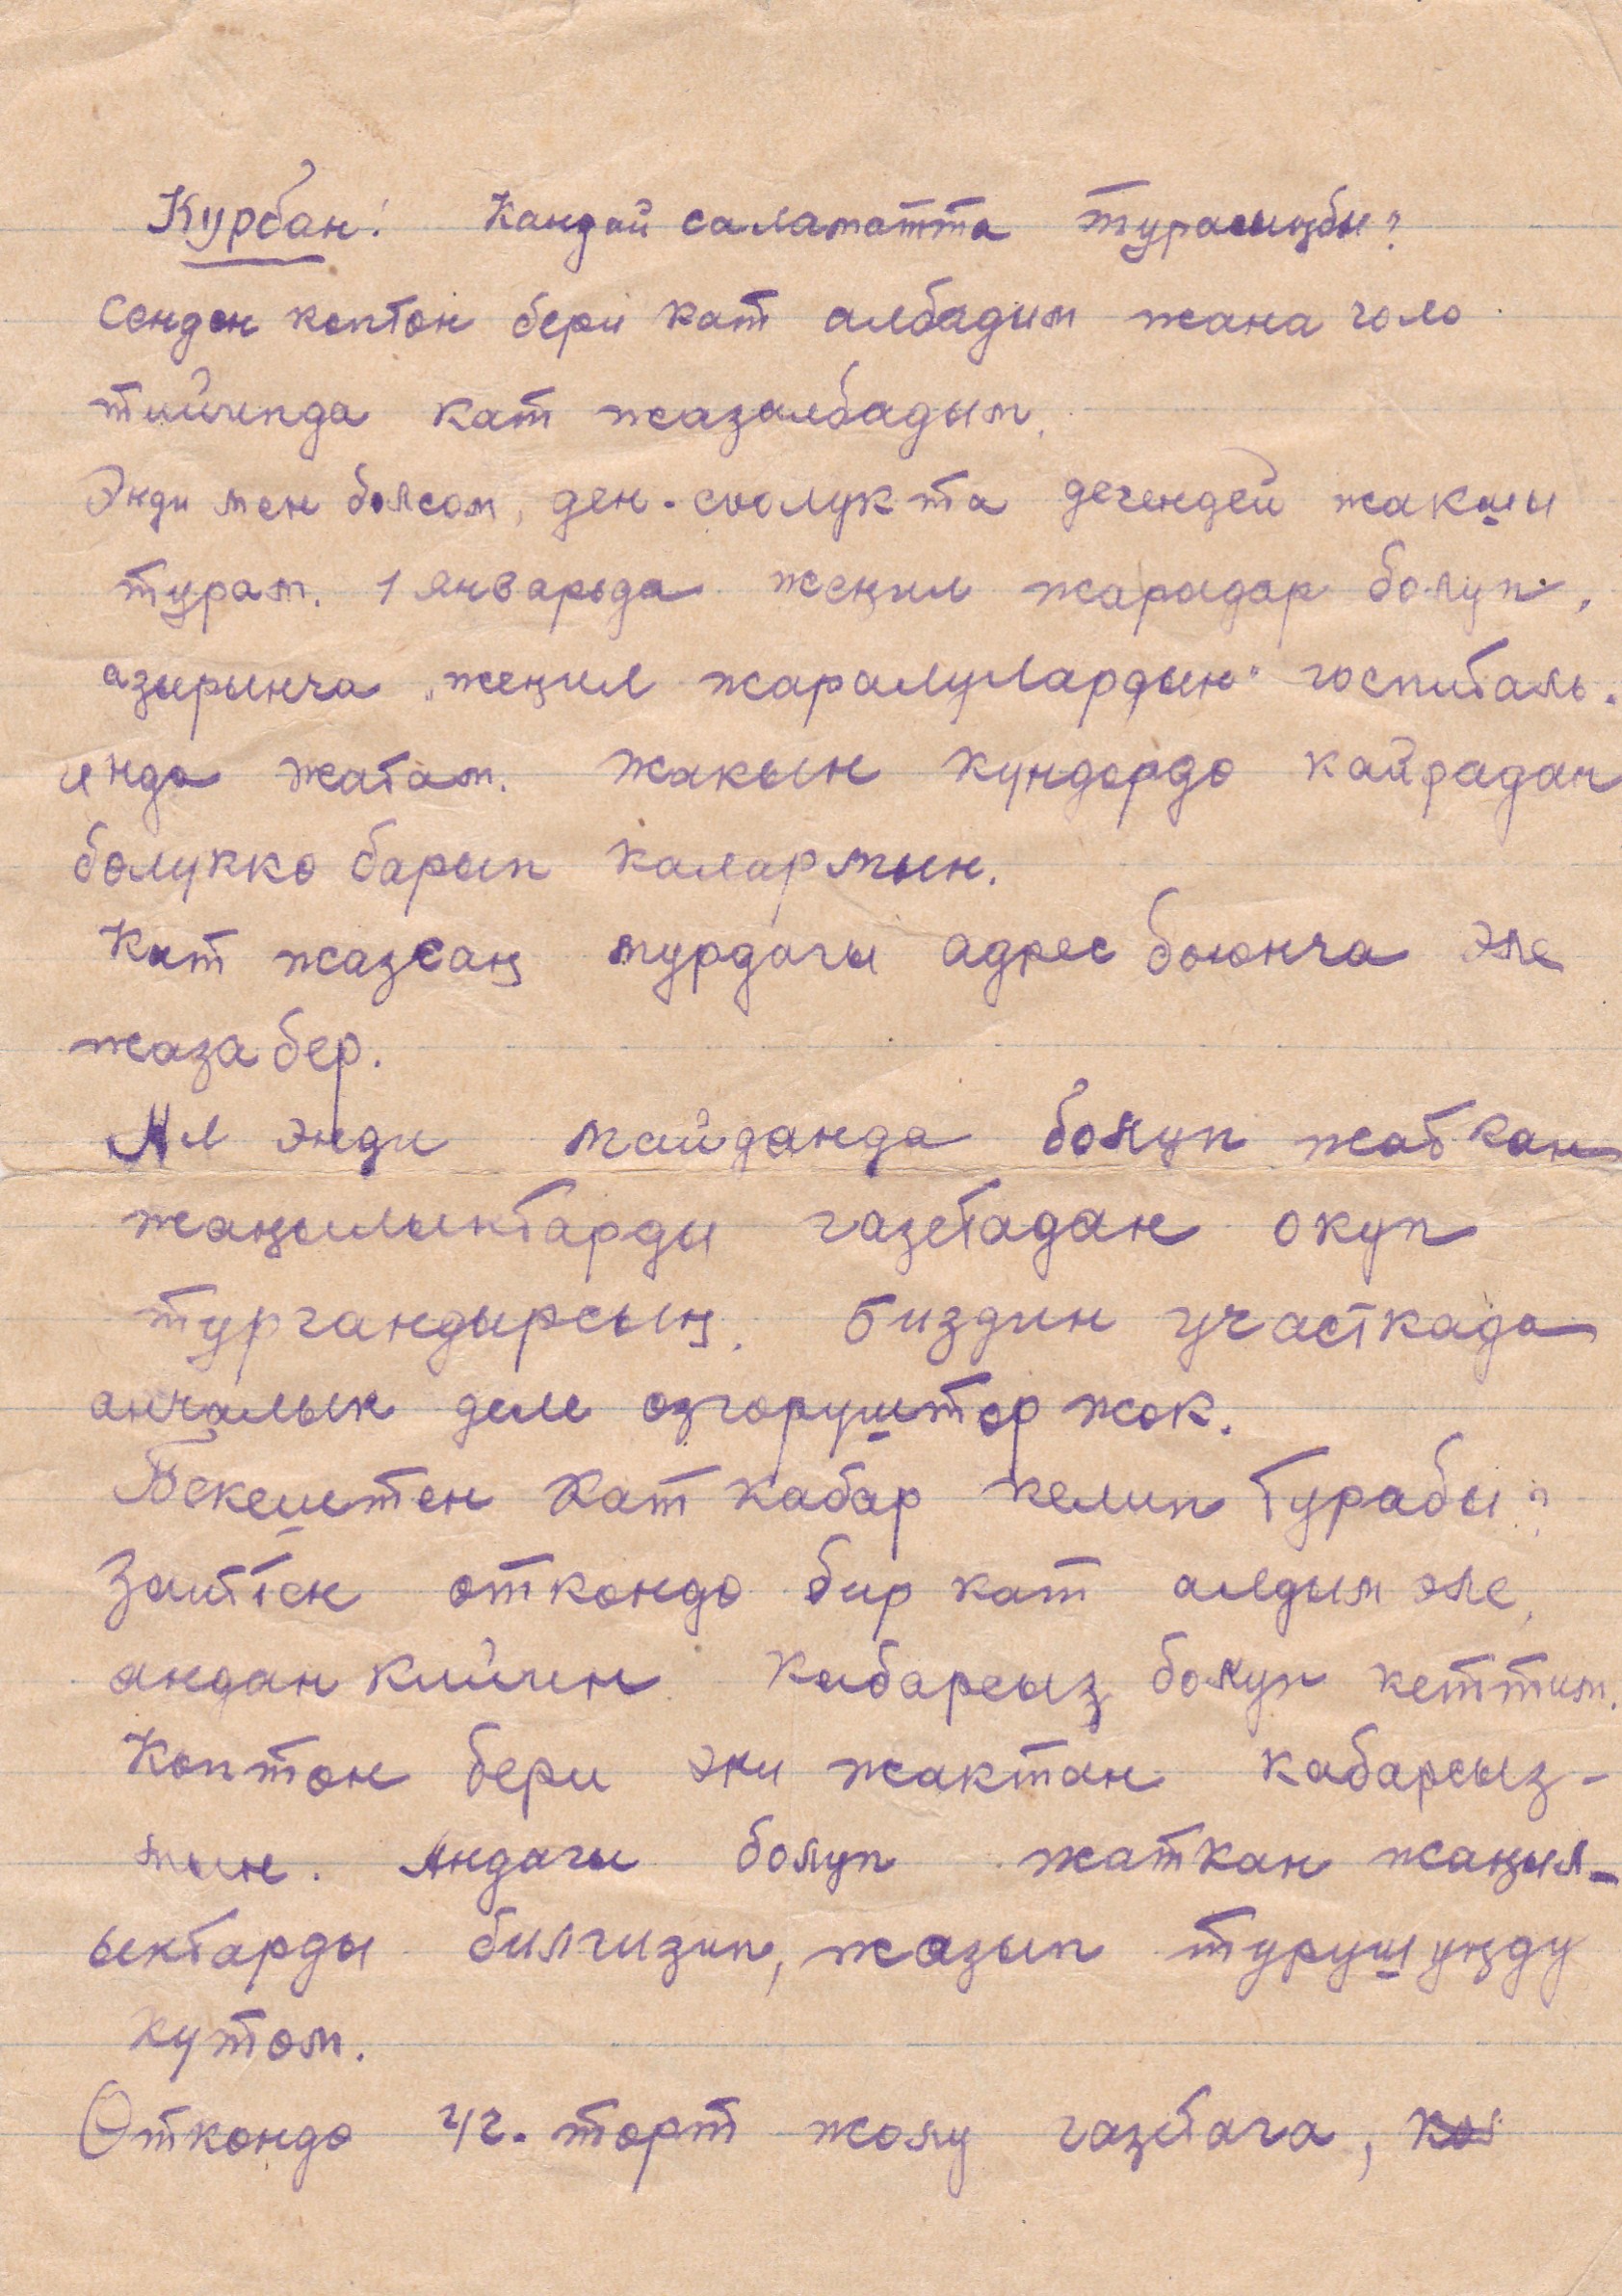 Курбан! Кандай саламатта турасыңбы?
Сенден көптөн бери кат албадим жана өзүм
тийчида кат жазалбадым.
Энди мен болсом, ден-соолукта дегендей жакшы
турам. 1 январьда жеңил жарадар болуп,
азырынча „жеңил жаралулардын“ госпиталь-
инда жатам. Жакын күндөрдө кайрадан
бөлүккө барып калармын.
Кат жазсаң мурдагы адрес боюнча эле
жаза бер.
Ал энди майданда болуп жаткан
жаңылыктарды газетадан окуп
тургандырсың. Биздин участкада
анчалык деле өзгөрүштөр жок.
Бекештен кат кабар келип турабы?
Заиттен өткөндө бир кат алдым эле,
андан кийин кабарсыз болуп кеттим.
Көптөн бери эки жактан кабарсыз-
мын. Андагы болуп жаткан жаңыл-
ыктарды билгизип, жазып турушуңду
күтөм.
Өткөндө үч-төрт жолу газетага,